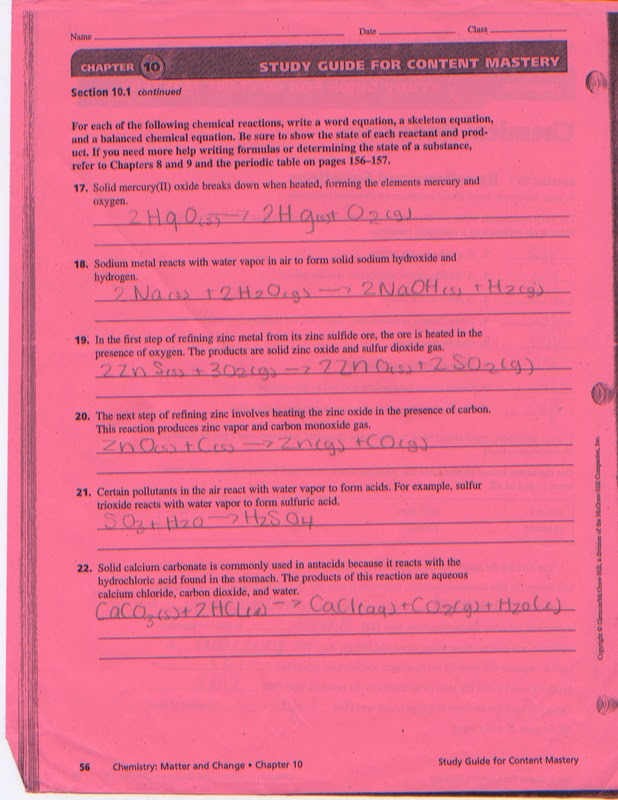 Name Date Class
CHAPTER 10 STUDY GUIDE FOR CONTENT MASTERY
Section 10.1 continued
For each of the following chemical reactions, write a word equation, a skeleton equation,
and a balanced chemical equation. Be sure to show the state of each reactant and prod-
uct. If you need more help writing formulas or determining the state of a substance,
refer to Chapters 8 and 9 and the periodic table on pages 156–157.
17. Solid mercury(II) oxide breaks down when heated, forming the elements mercury and
oxygen.
2HgO(s) → 2Hg(s)+ O2(g)
18. Sodium metal reacts with water vapor in air to form solid sodium hydroxide and
hydrogen.
2Na(s) + 2H2O(g) → 2NaOH(s) + H2(g)
19. In the first step of refining zinc metal from its zinc sulfide ore, the ore is heated in the
presence of oxygen. The products are solid zinc oxide and sulfur dioxide gas.
2ZnS(s) + 3O2(g) → 2ZnO(s) + 2SO2(g)
20. The next step of refining zinc involves heating the zinc oxide in the presence of carbon.
This reaction produces zinc vapor and carbon monoxide gas.
ZnO(s) + C(s) → Zn(g) + CO(g)
21. Certain pollutants in the air react with water vapor to form acids. For example, sulfur
trioxide reacts with water vapor to form sulfuric acid.
SO3 + H2O → H2SO4
22. Solid calcium carbonate is commonly used in antacids because it reacts with the
hydrochloric acid found in the stomach. The products of this reaction are aqueous
calcium chloride, carbon dioxide, and water.
CaCO3(s) + 2HCl(l) → CaCl(aq) + CO2(g) + H2O(l)
Copyright © Glencoe/McGraw-Hill, a division of the McGraw-Hill Companies, Inc.
56 Chemistry: Matter and Change • Chapter 10 Study Guide for Content Mastery